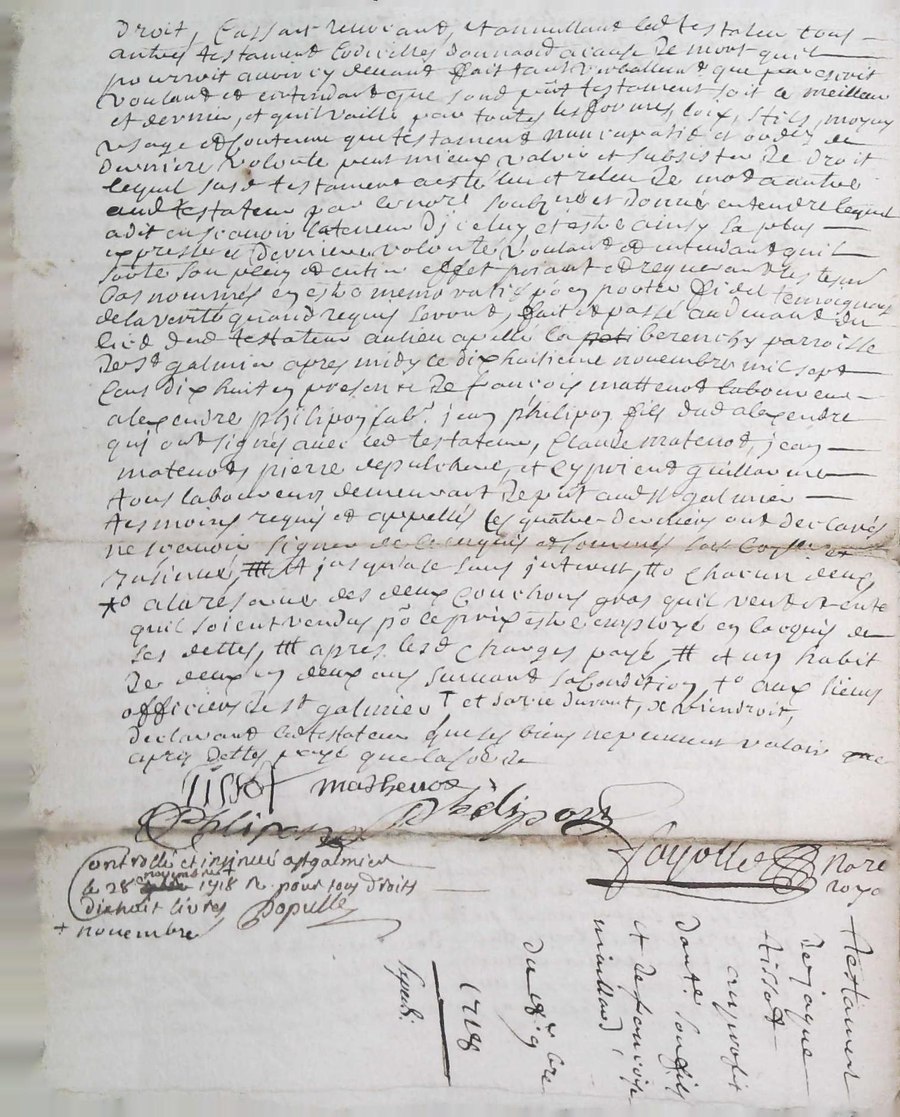 droit, Cassant revocant, et annullant led testateu tous
autres testament Codicilles donnaōn a cause de mort quil
pourroit avoir cy devant fait tant verballemt que par escrit
voulant et entendant que sond pn̄t testament soit le meilleur
et dernier, et quil vaille par toutes les formes, loix, stils, moyens
usage et coutume que testament nuncupatif et ordce de
derniere volonté peut mieux valoir et subsister de droit
lequel susd testament a esté leu et releu de mot a autre
aud testateur par le nore soubzne et donné entendre lequel
a dit en scavoir la teneur d'icelluy et estre ainsy sa plus
expresse et derniere volonté voulant et entendant quil
sorte son plein et entier effet priant et requerant les tesmoins
bas nommés en estre memoratifs po en porter fidel temoignage
de la verité quand requis seront, fait et passé au dimand du
lieu dud testateur au lieu apellé la berenchy parroisse
de St galmier apres midy ce dix huitieme novembre mil sept
Cens dix huit en presence de francois mattenod laboureur
alexendre philipon labr. jean philipon fils dud alexendre
qui ont signés avec led testateur, Claude matenod, jean
matenod, pierre depulchene, et Cyprient guillaume
tous laboureurs demeurant de pnt aud St galmier
tesmoins requis et appellés les quatre derniers ont declarés
ne scavoir signer de ce enquis et sommés
jusqu'a le sans interest, ꝉto chacun deux,
*o a la reserve des deux Couchons gras quil veut et entend
quil soient vendus po le prix estre employé en lacquis de
ses dettes, ttt apres lesd Charges payé, # et un habit
de deux en deux ans suivant sa Condition, to aux siens
officiers de St galmier T et sa vie durant, de viendroit,
declarant le testateur que ses biens ne peuvent valoir
apres dettes payé que la so̅e de
Tissot mathevot
Philipon Phelipon
Fayolle Nore
roya
Controllé et insinué a St galmier
le 28 novembre + 1718 R pour tous droits
dixhuit livres Dopulle
+ novembre
Testament
de jaque
tissot
au profit
dantoe. son fils
et de francoise
maillard,
du 18e 9bre
1718
Expedi.